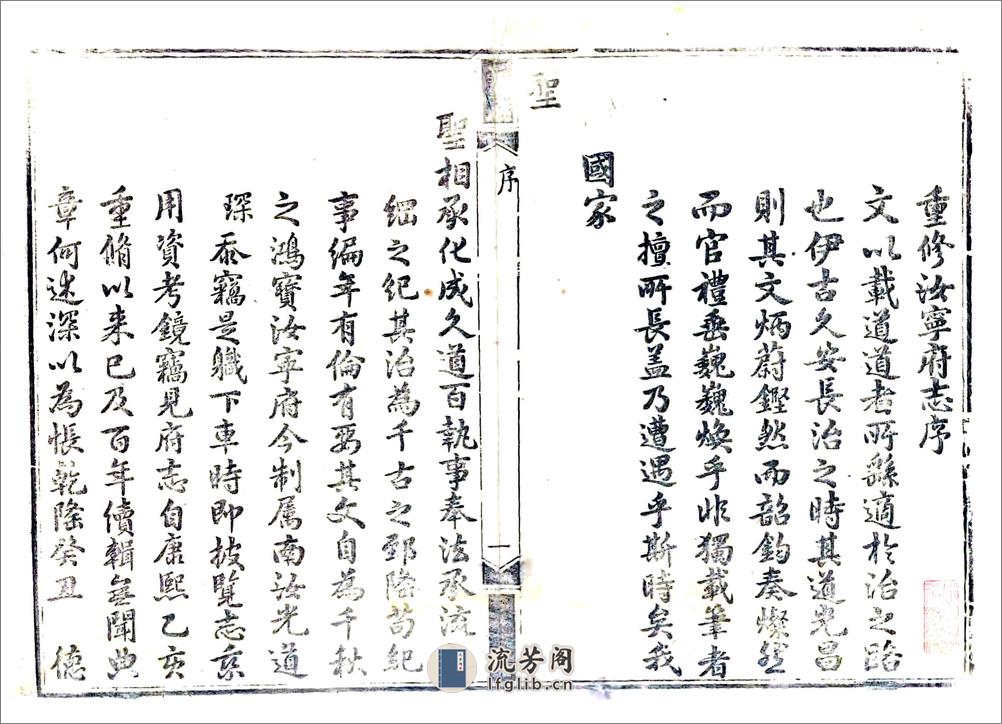 重修汝寧府志序
文以載道道者所繇適於治之路
也伊古久安長治之時其道光昌
則其文炳蔚鏗然而韶鈞奏燦然
而官禮垂巍巍煥乎非獨載筆者
之擅所長盖乃遭遇乎斯時矣我
國家
聖
序
一
聖相承化成久道百執事奉法承流
細之紀其治為千古之郅隆苟紀
事編年有倫有要其文自為千秋
之鴻寶汝寧府今制属南汝光道
琛忝竊是職下車時即披覽志乘
用資考鏡竊見府志自康熙乙亥
重脩以来已及百年續輯無聞典
章何述深以為悵乾隆癸丑 德
流芳阁
lfglib.cn